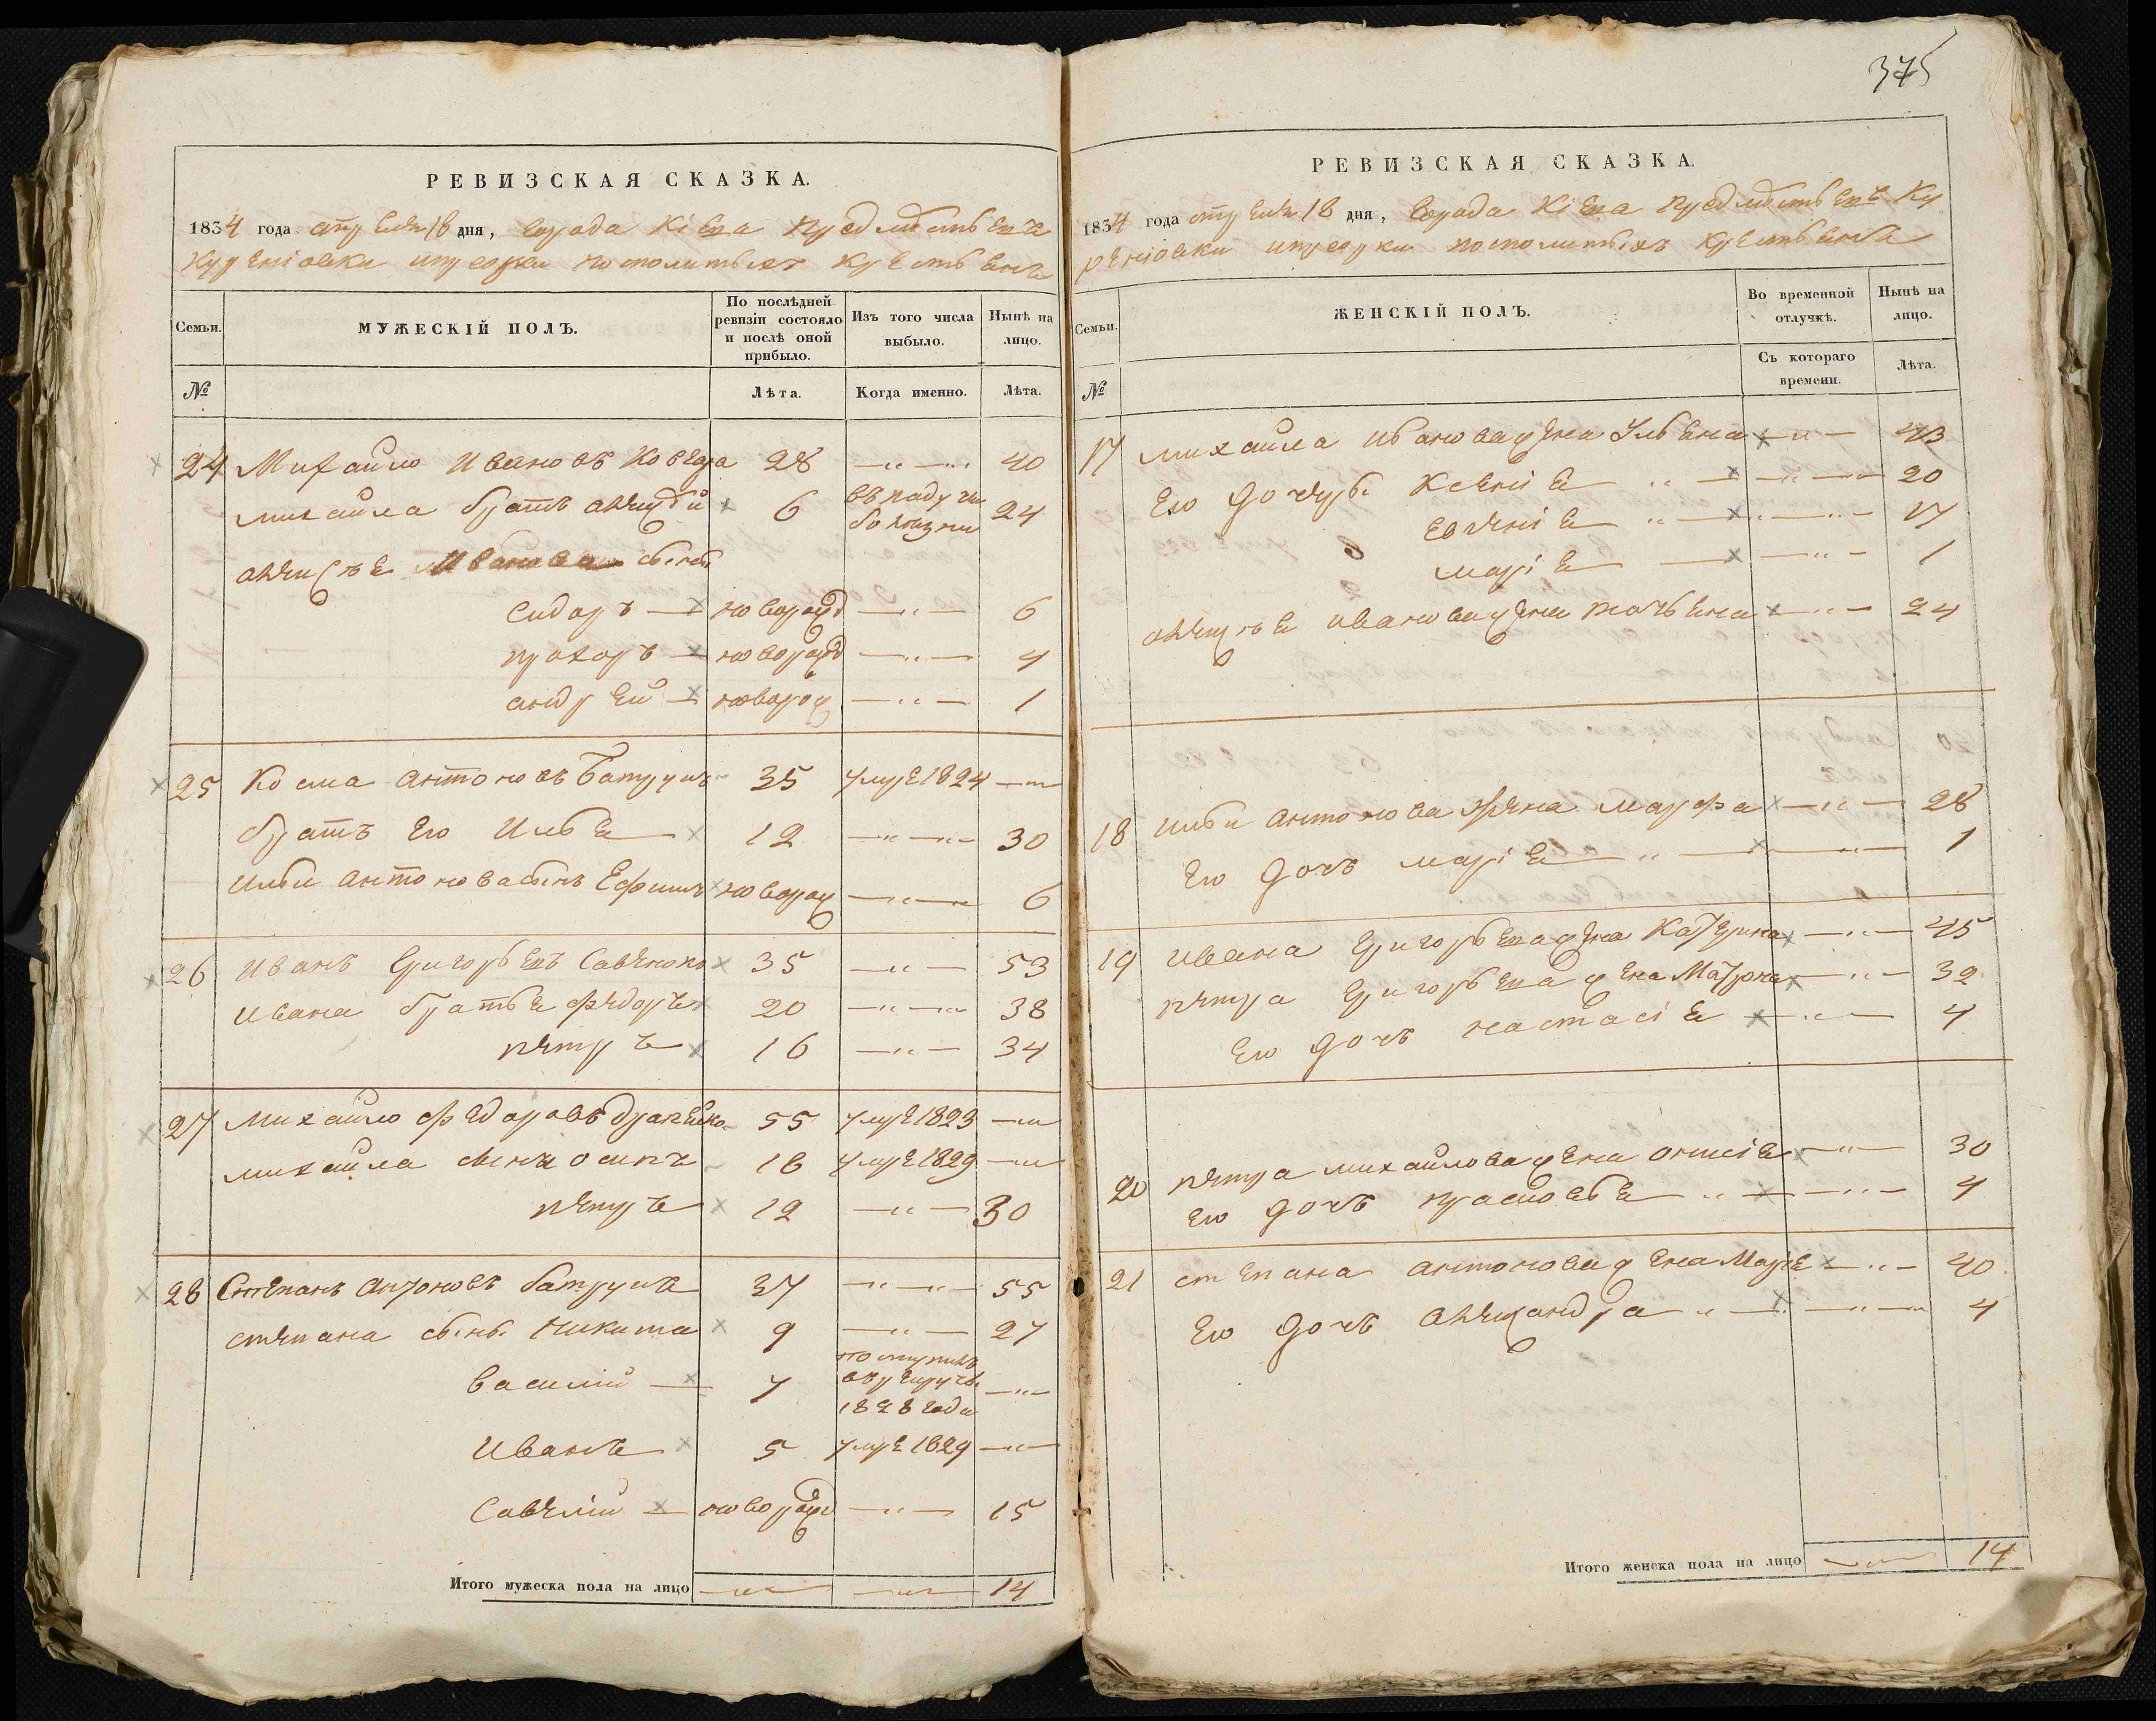 375
РЕВИЗСКАЯ СКАЗКА.
1834 года апреля 18 дня, Города Кіева Предместьевъ
Куреніовки и Приорки посполитыхъ крестьянъ
Семьи.
МУЖЕСКІЙ ПОЛЪ.
По послѣдней ревизіи состояло и послѣ оной прибыло.
Изъ того числа выбыло.
Нынѣ на лицо.
№
Лѣта.
Когда именно.
Лѣта.
24 Михайло Ивановъ 28 —"— 40
Михайла братъ Алексѣй 6 въ падучи болезни 24
Алексѣя Иванова сыны
Сидоръ — новорожд —"— 6
Прохоръ — новорожд —"— 4
Андрей — новорож —"— 1
25 Косма Антоновъ Батрунъ 35 умре 1824 —"—
братъ его Илья 12 —"— 30
Ильи Антонова сынъ Ефимъ новорож —"— 6
26 Иванъ Григорьевъ Савенокъ 35 —"— 53
Ивана братья Федоръ 20 —"— 38
Петръ 16 —"— 34
27 Михайло Федоровъ 55 умре 1823 —"—
Михайла сыны Осипъ 16 умре 1829 —"—
Петръ 12 —"— 30
28 Степанъ Антоновъ Батрунъ 37 —"— 55
Степана сыны Никита 9 —"— 27
Василий — 7 поступилъ в рекруты 1828 года —"—
Иванъ 5 умре 1829 —"—
Савелий — новорожд —"— 15
Итого мужеска пола на лицо —"— —"— 14
РЕВИЗСКАЯ СКАЗКА.
1834 года апреля 18 дня, Города Кіева Предместьевъ Ку
реніовки и Приорки посполитыхъ крестьянъ
Семьи.
ЖЕНСКІЙ ПОЛЪ.
Во временной отлучкѣ.
Нынѣ на лицо.
№
Съ котораго времени.
Лѣта.
17 Михайла Иванова жена Ульяна —"— 43
Его дочери Ксенія " — —"— 20
Евгенія " — —"— 17
Марія — —"— 1
Алексѣя Иванова жена Татьяна —"— 24
18 Ильи Антонова жена Марфа —"— 28
Его дочь Марія " — —"— 1
19 Ивана Григорьева жена Катерина —"— 45
Петра Григорьева жена Матрона —"— 32
Его дочь Настасія —"— 4
20 Петра Михайлова жена Онисія —"— 30
Его дочь Прасковья " — —"— 4
21 Степана Антонова жена Марія —"— 40
Его дочь Александра " — —"— 4
Итого женска пола на лицо —"— 14